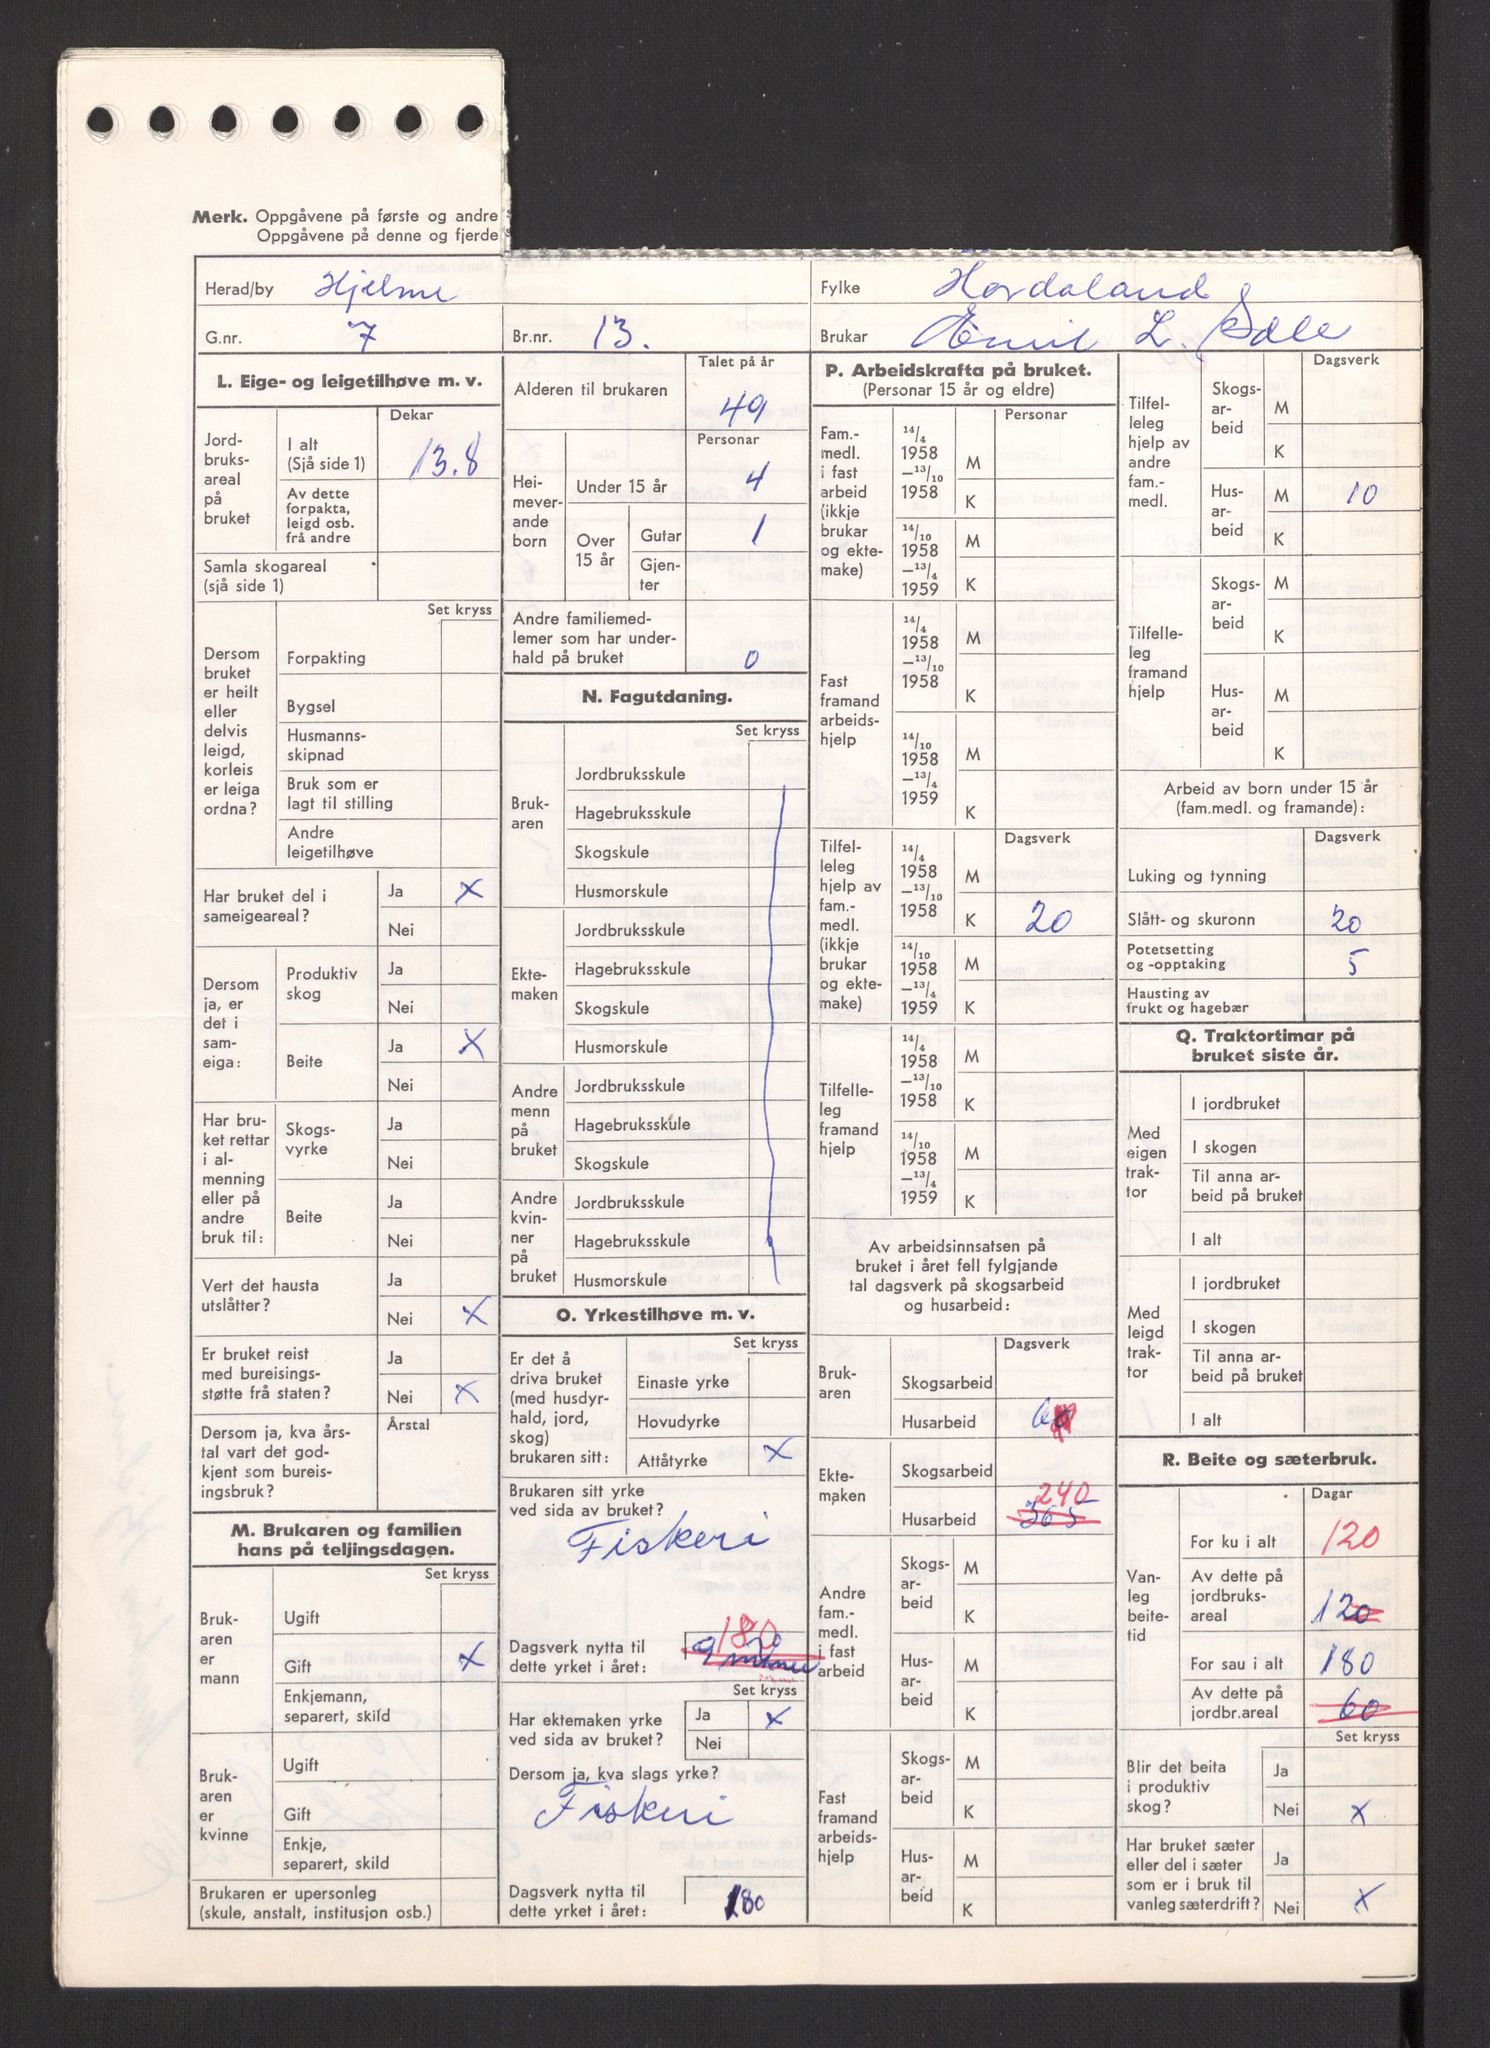 Merk. Oppgåvene på første og andre
Oppgåvene på denne og fjerde
Herad/by Hjelme
Fylke Hordaland
G.nr. 7
Br.nr. 13.
Brukar Emil L.
L. Eige- og leigetilhøve m. v.
Dekar
Jord-
bruks-
areal
på
bruket
I alt
(Sjå side 1) 13.8
Av dette
forpakta,
leigd osb.
frå andre
Samla skogareal
(sjå side 1)
Set kryss
Dersom
bruket
er heilt
eller
delvis
leigd,
korleis
er leiga
ordna?
Forpakting
Bygsel
Husmanns-
skipnad
Bruk som er
lagt til stilling
Andre
leigetilhøve
Har bruket del i
sameigeareal?
Ja X
Nei
Dersom
ja, er
det i
sam-
eiga:
Produktiv
skog
Ja
Nei
Beite
Ja X
Nei
Har bru-
ket rettar
i al-
menning
eller på
andre
bruk til:
Skogs-
vyrke
Ja
Nei
Beite
Ja
Nei
Vert det hausta
utslåtter?
Ja
Nei X
Er bruket reist
med bureisings-
støtte frå staten?
Ja
Nei X
Dersom ja, kva års-
tal vart det god-
kjent som bureis-
ingsbruk?
Årstal
M. Brukaren og familien
hans på teljingsdagen.
Set kryss
Bruk-
aren
er
mann
Ugift
Gift X
Enkjemann,
separert, skild
Bruk-
aren
er
kvinne
Ugift
Gift
Enkje,
separert, skild
Brukaren er upersonleg
(skule, anstalt, institusjon osb.)
Talet på år
Alderen til brukaren 49
Personar
Hei-
mever-
ande
born
Under 15 år 4
Over
15 år
Gutar 1
Gjen-
ter
Andre familiemed-
lemer som har under-
hald på bruket 0
N. Fagutdaning.
Set kryss
Bruk-
aren
Jordbruksskule
Hagebruksskule
Skogskule
Husmorskule
Ekte-
maken
Jordbruksskule
Hagebruksskule
Skogskule
Husmorskule
Andre
menn
på
bruket
Jordbruksskule
Hagebruksskule
Skogskule
Andre
kvin-
ner
på
bruket
Jordbruksskule
Hagebruksskule
Husmorskule
O. Yrkestilhøve m. v.
Set kryss
Er det å
driva bruket
(med husdyr-
hald, jord,
skog)
brukaren sitt:
Einaste yrke
Hovudyrke
Attåtyrke X
Brukaren sitt yrke
ved sida av bruket?
Fiskeri
180
Dagsverk nytta til
dette yrket i året: 9
Set kryss
Har ektemaken yrke
ved sida av bruket?
Ja X
Nei
Dersom ja, kva slags yrke?
Fiskeri
Dagsverk nytta til
dette yrket i året: 180
P. Arbeidskrafta på bruket.
(Personar 15 år og eldre)
Personar
Fam.-
medl.
i fast
arbeid
(ikkje
brukar
og ekte-
make)
14/4
1958
—13/10
1958
M
K
14/10
1958
—13/4
1959
M
K
Fast
framand
arbeids-
hjelp
14/4
1958
—13/10
1958
M
K
14/10
1958
—13/4
1959
M
K
Dagsverk
Tilfel-
leleg
hjelp av
fam.-
medl.
(ikkje
brukar
og ekte-
make)
14/4
1958
—13/10
1958
M
K 20
14/10
1958
—13/4
1959
M
K
Tilfelle-
leg
framand
hjelp
14/4
1958
—13/10
1958
M
K
14/10
1958
—13/4
1959
M
K
Av arbeidsinnsatsen på
bruket i året fell fylgjande
tal dagsverk på skogsarbeid
og husarbeid:
Dagsverk
Bruk-
aren
Skogsarbeid
Husarbeid
Ekte-
maken
Skogsarbeid
240
Husarbeid 365
Andre
fam.-
medl.
i fast
arbeid
Skogs-
ar-
beid
M
K
Hus-
ar-
beid
M
K
Fast
framand
arbeids-
hjelp
Skogs-
ar-
beid
M
K
Hus-
ar-
beid
M
K
Dagsverk
Tilfel-
leleg
hjelp av
andre
fam.-
medl.
Skogs-
ar-
beid
M
K
Hus-
ar-
beid
M 10
K
Tilfelle-
leg
framand
hjelp
Skogs-
ar-
beid
M
K
Hus-
ar-
beid
M
K
Arbeid av born under 15 år
(fam.medl. og framande):
Dagsverk
Luking og tynning
Slått- og skuronn 20
Potetsetting
og -opptaking 5
Hausting av
frukt og hagebær
Q. Traktortimar på
bruket siste år.
Med
eigen
trak-
tor
I jordbruket
I skogen
Til anna ar-
beid på bruket
I alt
Med
leigd
trak-
tor
I jordbruket
I skogen
Til anna ar-
beid på bruket
I alt
R. Beite og sæterbruk.
Dagar
Van-
leg
beite-
tid
For ku i alt 120
Av dette på
jordbruks-
areal 120
For sau i alt 180
Av dette på
jordbr.areal 60
Set kryss
Blir det beita
i produktiv
skog?
Ja
Nei X
Har bruket sæter
eller del i sæter
som er i bruk til
vanleg sæterdrift?
Ja
Nei X